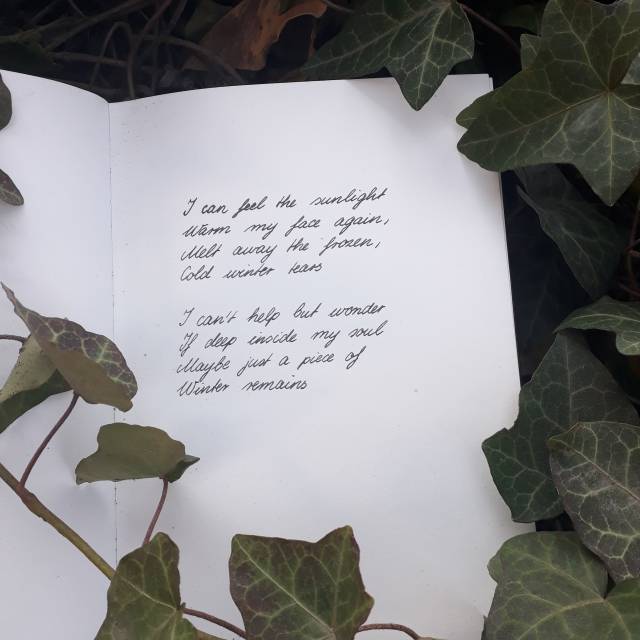 I can feel the sunlight
Warm my face again,
Melt away the frozen,
Cold winter tears
I can't help but wonder
If deep inside my soul
Maybe just a piece of
Winter remains